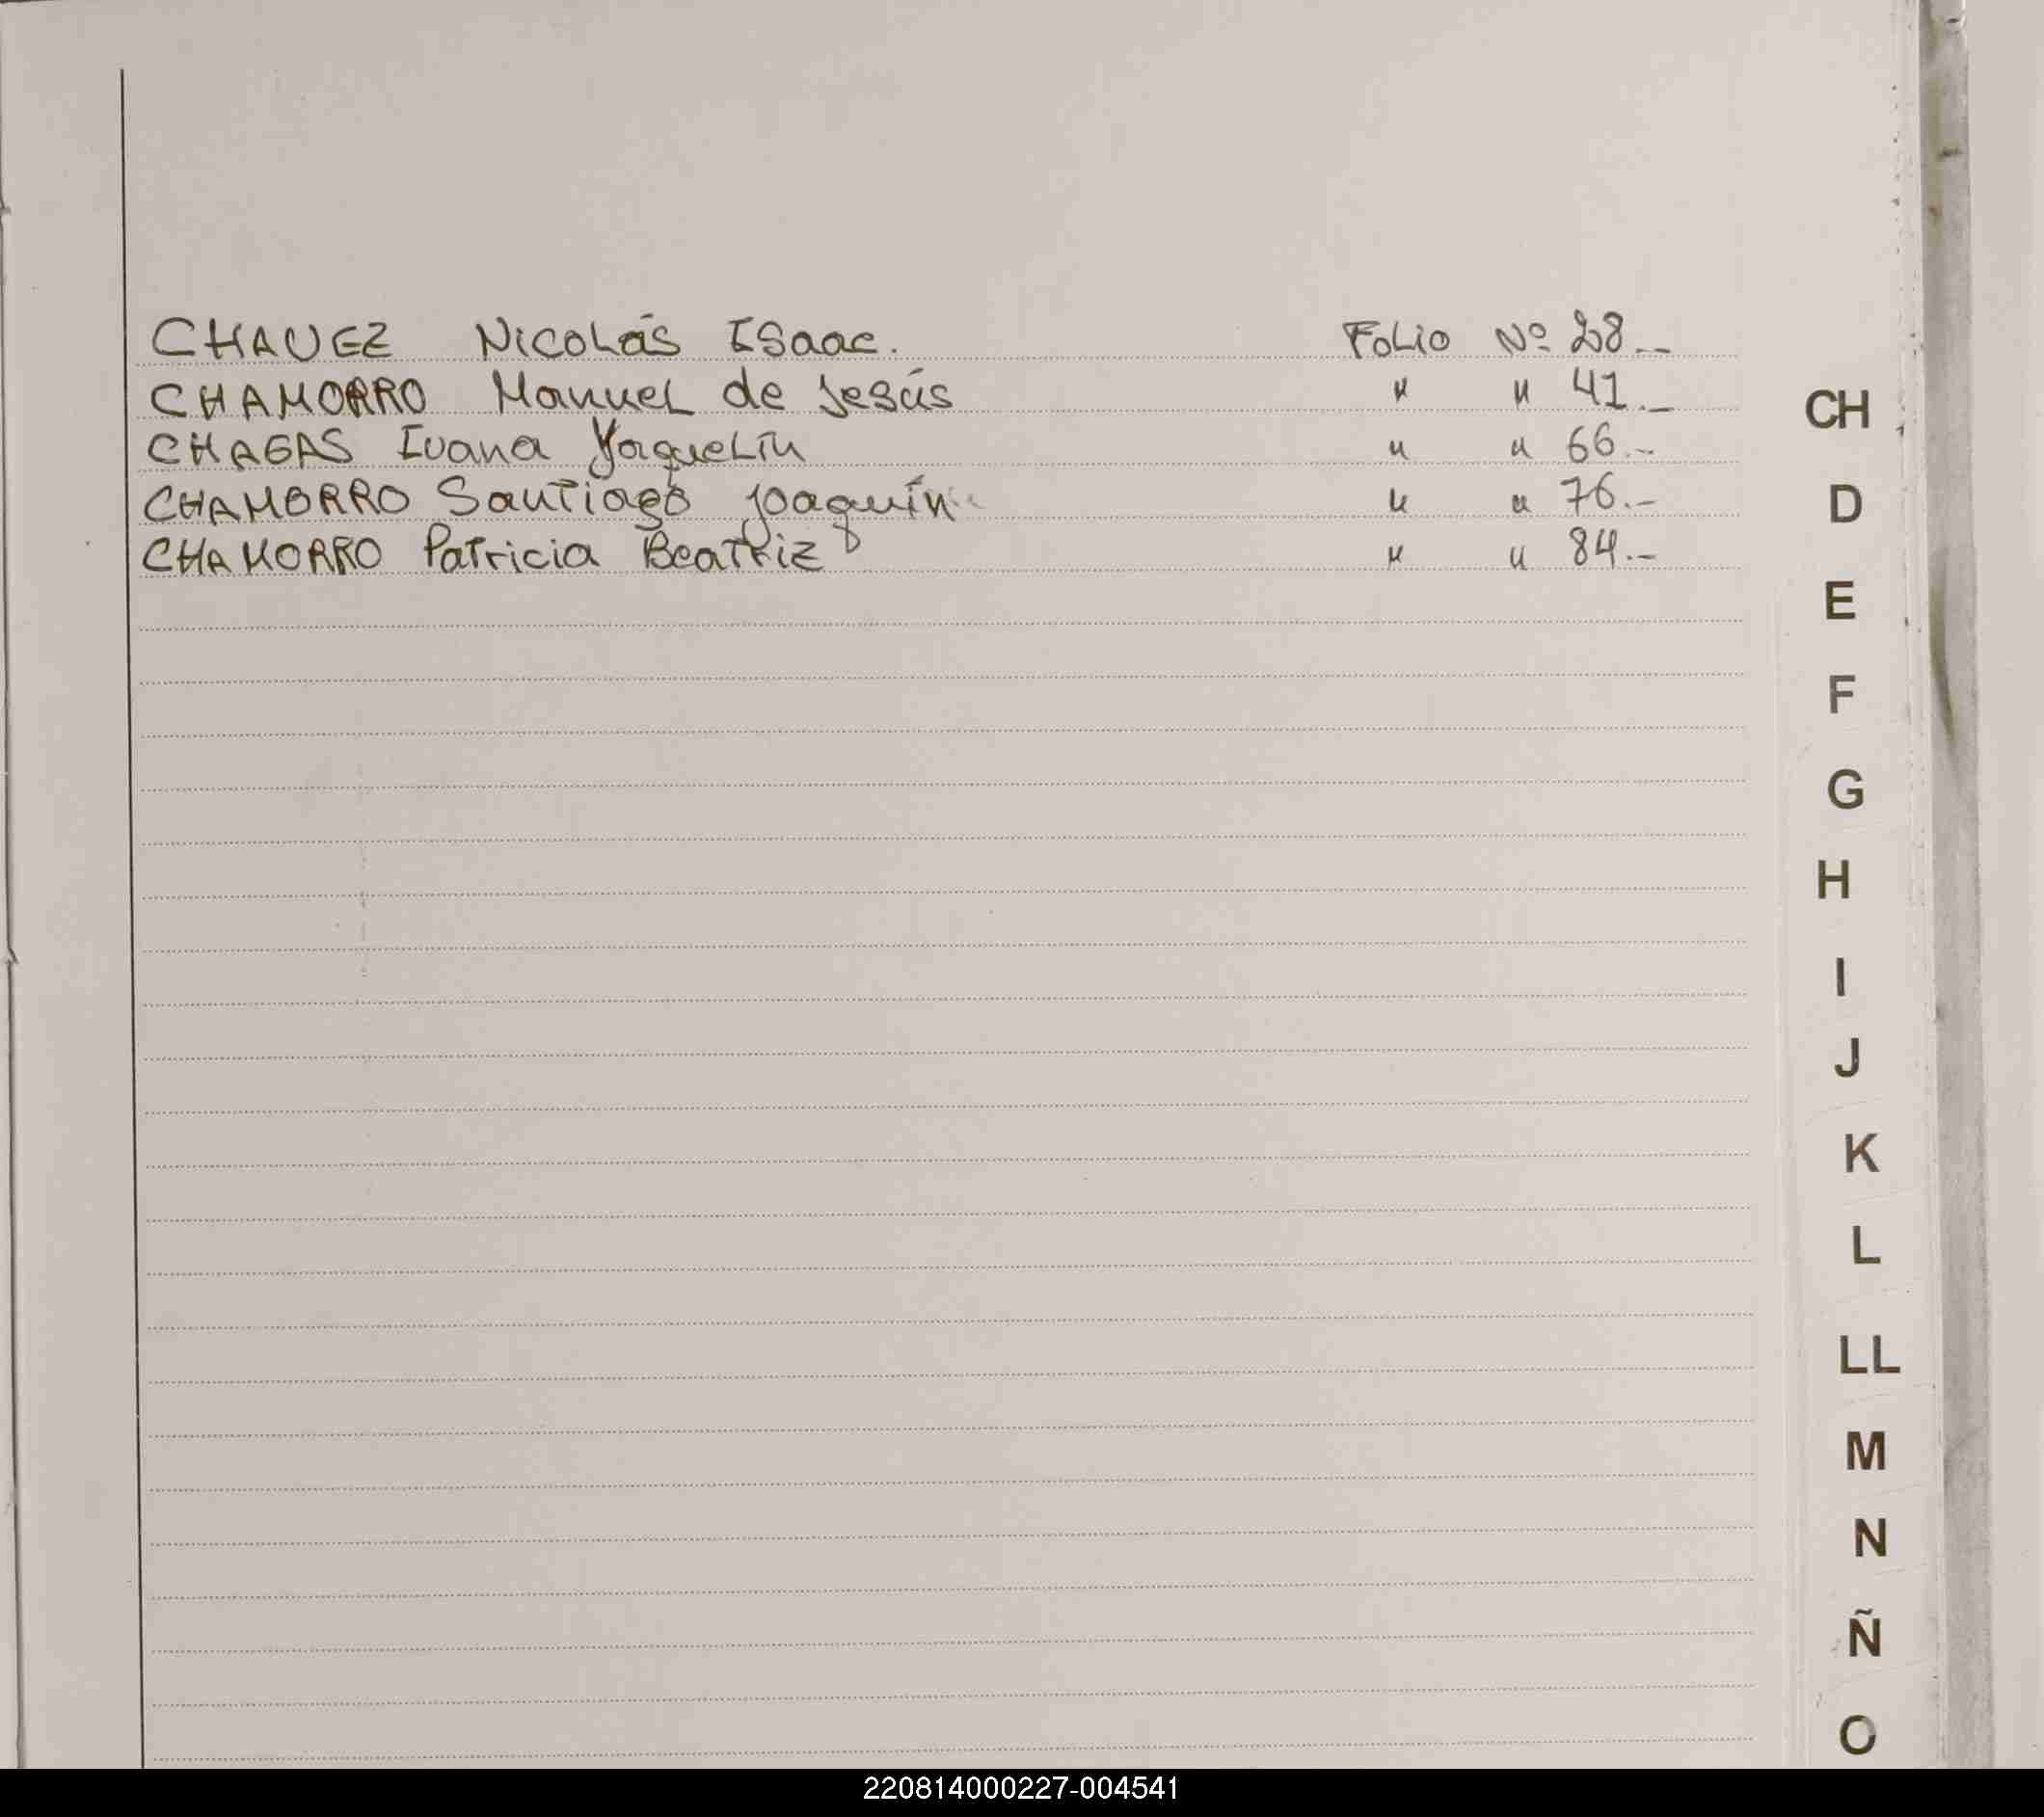 CHAVEZ Nicolás Isaac. Folio Nº 28.-
CHAMORRO Manuel de Jesús " " 41.-
CHAGAS Ivana Yaquelin " " 66.-
CHAMORRO Santiago Joaquín " " 76.-
CHAMORRO Patricia Beatriz " " 84.-
CH
D
E
F
G
H
I
J
K
L
LL
M
N
Ñ
O
220814000227-004541